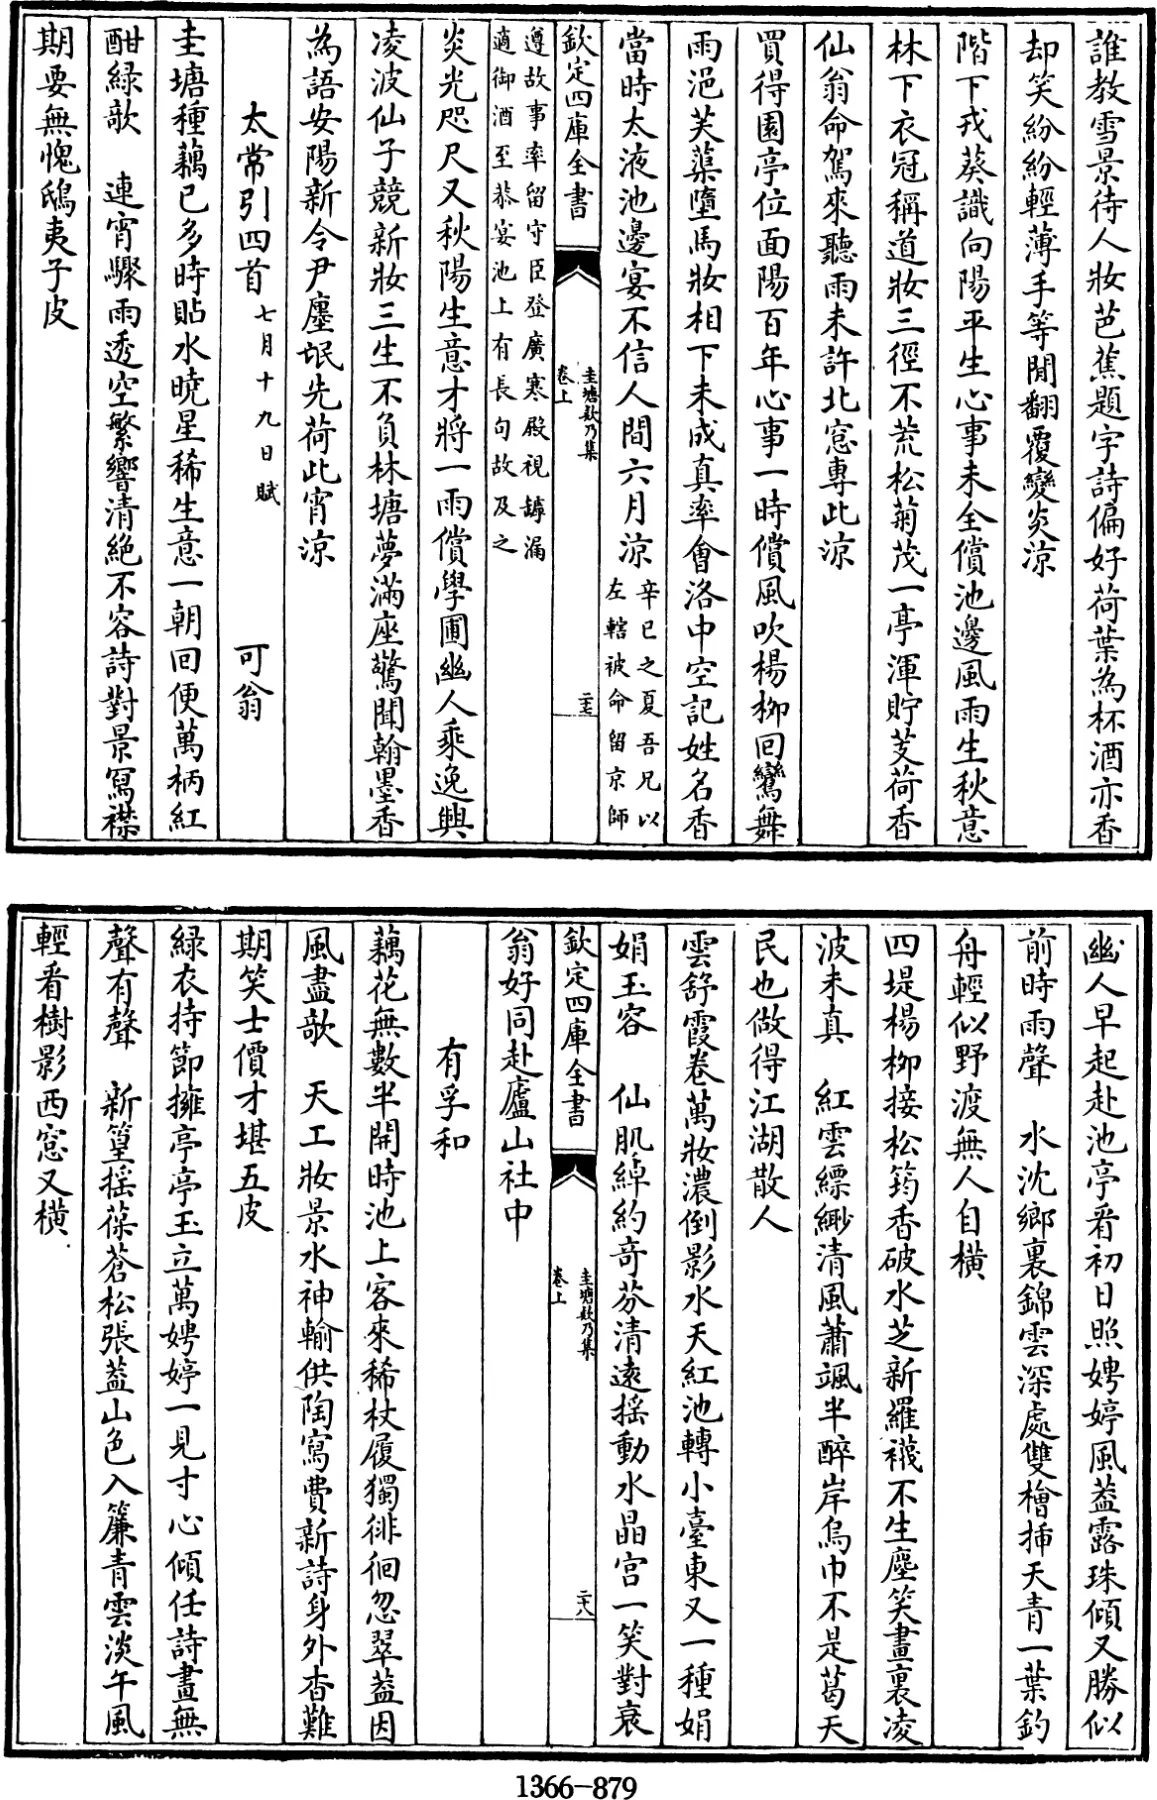 誰教雪景待人妝芭蕉題字詩偏好荷葉為杯酒亦香
却笑紛紛輕薄手等閒翻覆變炎涼
階下戎葵識向陽平生心事未全償池邊風雨生秋意
林下衣冠稱道妝三徑不荒松菊茂一亭渾貯芰荷香
仙翁命駕來聽雨未許北窓專此涼
買得園亭位面陽百年心事一時償風吹楊柳回鸞舞
雨浥芙蕖墮馬妝相下未成真率會洛中空記姓名香
當時太液池邊宴不信人間六月涼
辛巳之夏吾兄以
左轄被命留京師
欽定四庫全書
圭塘欸乃集
卷上
二十七
遵故事率留守臣登廣寒殿視罅漏
適御酒至恭宴池上有長句故及之
炎光咫尺又秋陽生意才將一雨償學圃幽人乘逸興
凌波仙子競新妝三生不負林塘夢滿座驚聞翰墨香
為語安陽新令尹廛氓先荷此宵涼
太常引四首 七月十九日賦 可翁
圭塘種藕已多時貼水曉星稀生意一朝回便萬柄紅
酣緑歆 連宵驟雨透空繁響清絶不容詩對景寫襟
期要無愧鴟夷子皮
幽人早起赴池亭看初日照娉婷風葢露珠傾又勝似
前時雨聲 水沈鄉裏錦雲深處雙檜揷天青一葉釣
舟輕似野渡無人自橫
四堤楊柳接松筠香破水芝新羅襪不生塵笑畫裏凌
波未真 紅雲縹緲清風蕭颯半醉岸烏巾不是葛天
民也做得江湖散人
雲舒霞卷萬妝濃倒影水天紅池轉小臺東又一種娟
娟玉容 仙肌綽約竒芬清遠揺動水晶宫一笑對衰
欽定四庫全書
圭塘欸乃集
卷上
二十八
翁好同赴廬山社中
有孚和
藕花無數半開時池上客來稀杖履獨徘徊忽翠葢因
風盡歆 天工妝景水神輸供陶寫費新詩身外杳難
期笑士價才堪五皮
緑衣持節擁亭亭玉立萬娉婷一見寸心傾任詩畫無
聲有聲 新篁揺葆蒼松張葢山色入簾青雲淡午風
輕看樹影西窓又橫
1366-879